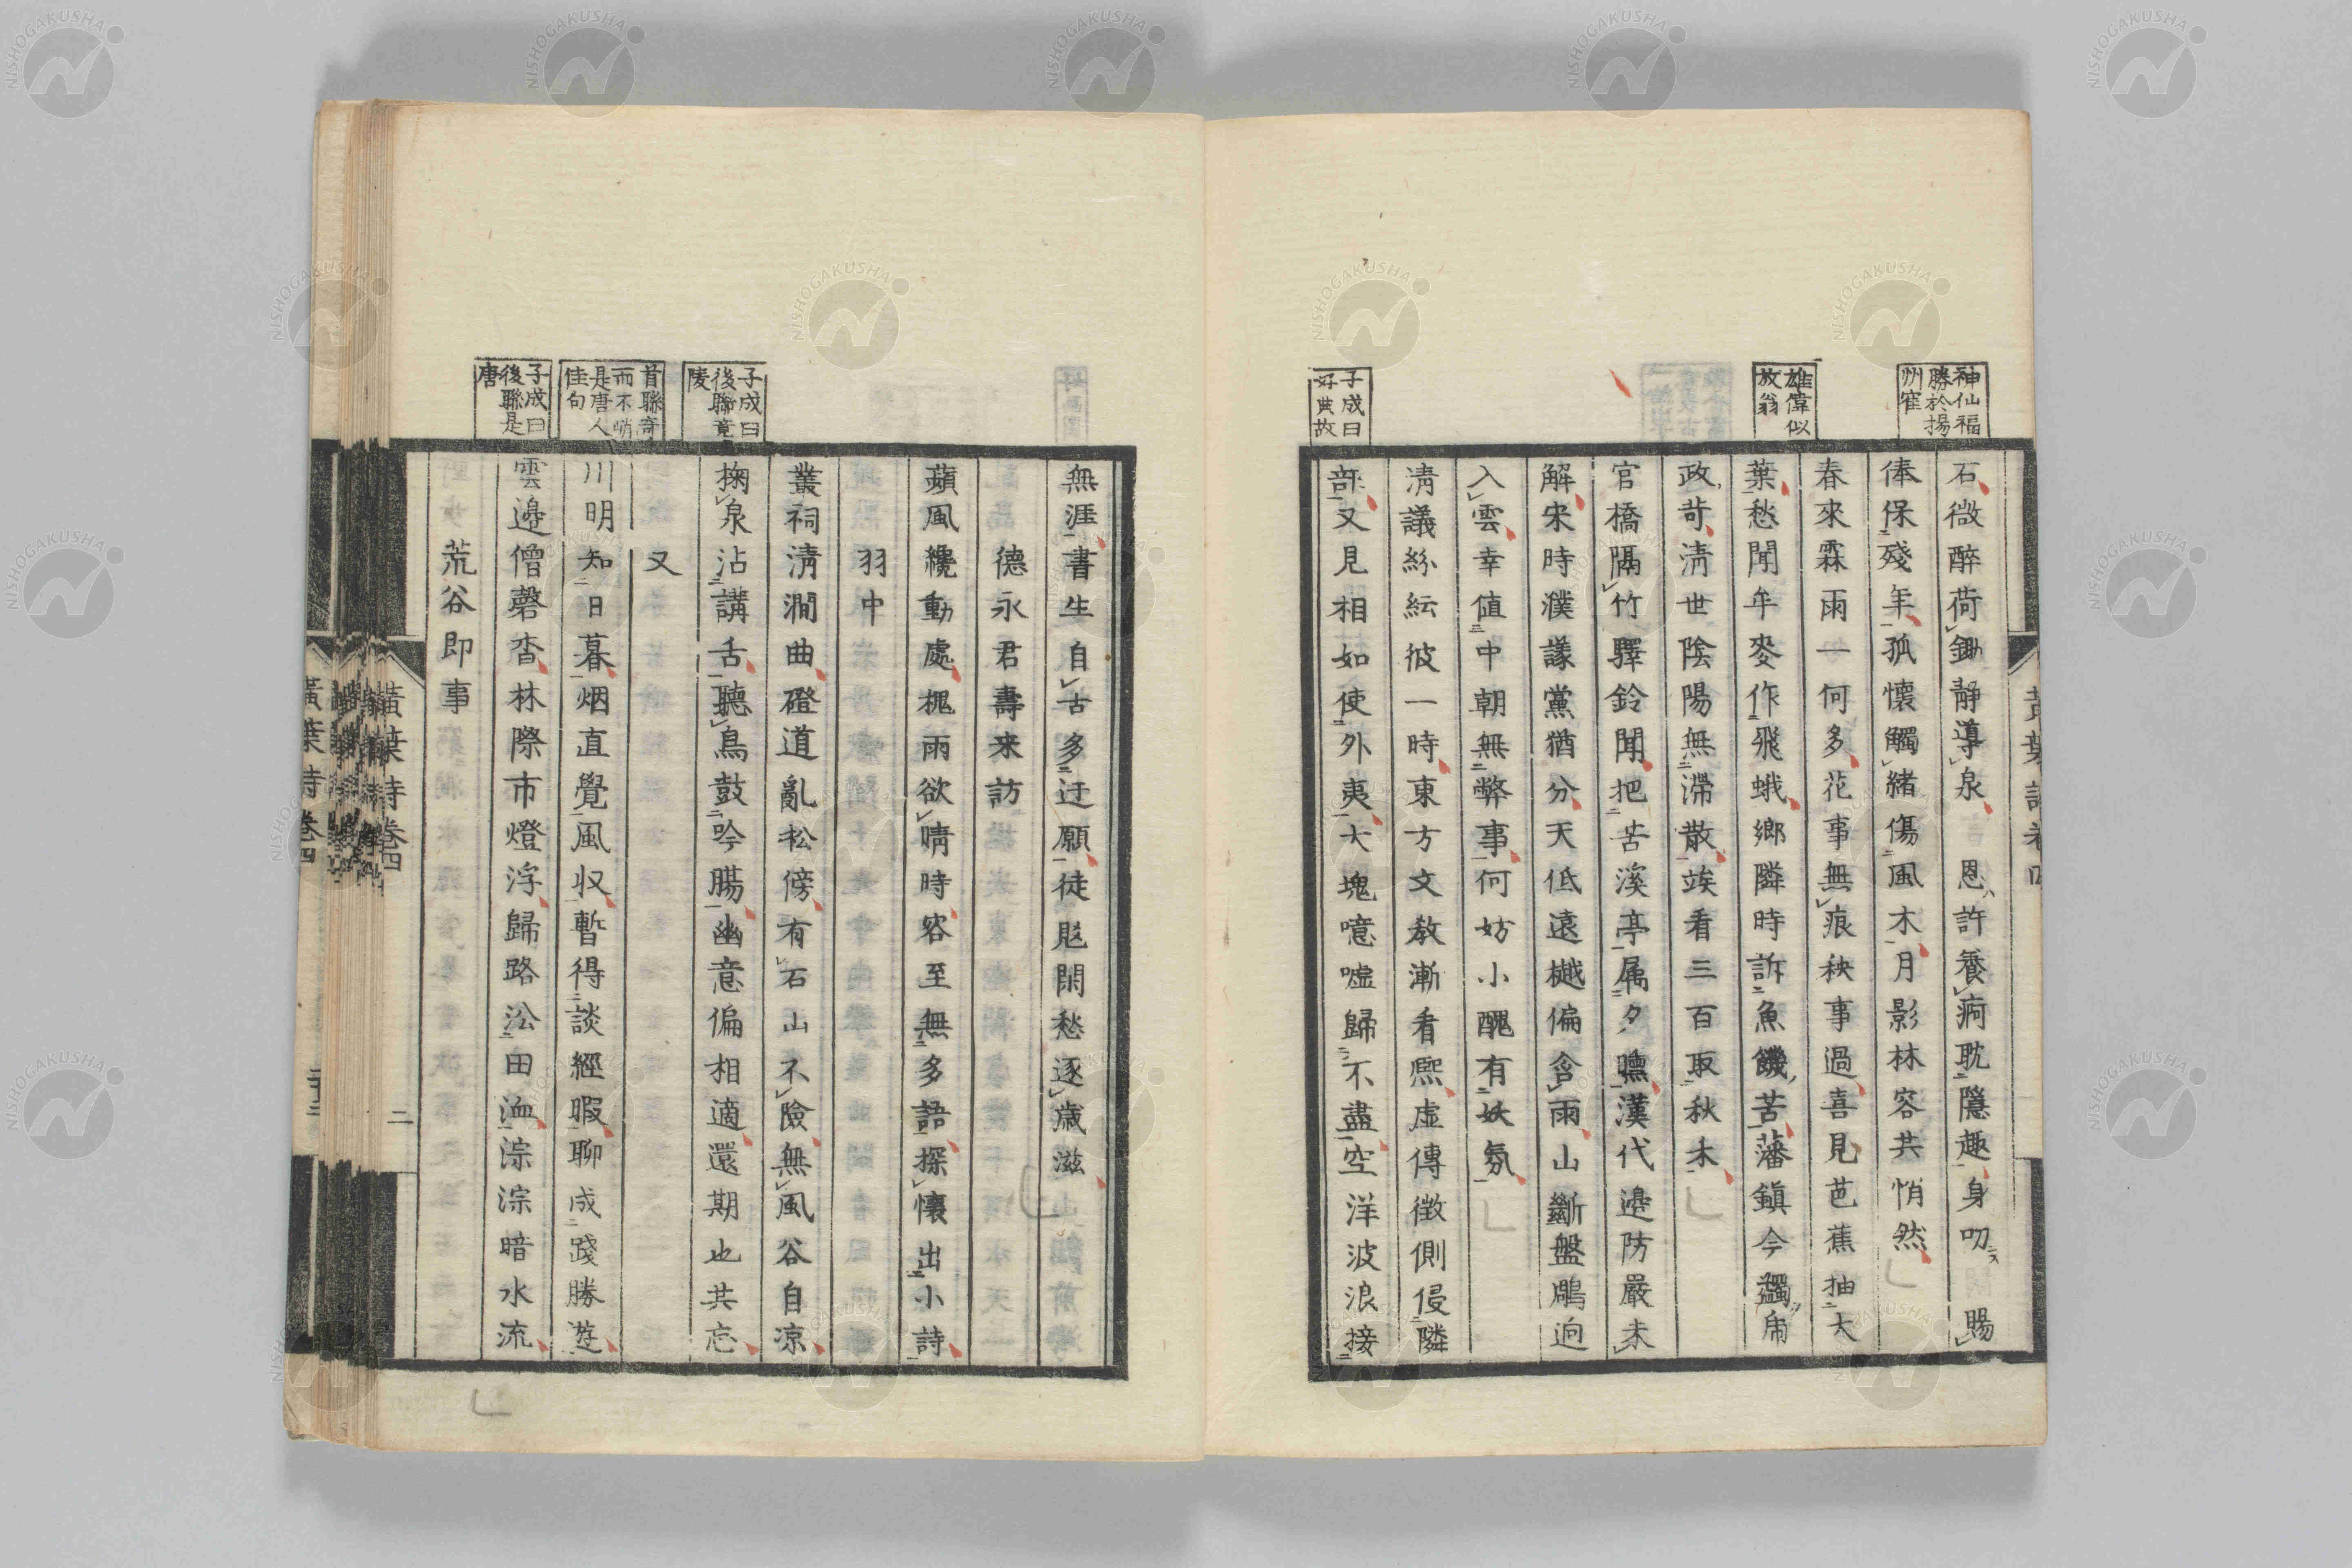 神仙福
勝於揚
州寉
石微醉荷鋤静導泉恩許養痾耽隱趣身叨賜
俸保殘年孤懷觸緒傷風木月影林容共悄然
春來霖雨一何多花事無痕秧事過喜見芭蕉抽大
雄偉似
放翁
葉愁聞牟麥作飛蛾鄉隣時訴魚饑苦藩鎮今蠲庸
政苛淸世陰陽無滯散竢看三百取秋禾
官橋隔竹驛鈴聞把苦溪亭属夕曛漢代邊防嚴未
解宋時濮議黨猶分天低遠樾偏含雨山斷盤鵰逈
入雲幸值中朝無弊事何妨小醜有妖氛
淸議紛紜彼一時東方文教漸看熈虛傳徵側侵隣
子成曰
好典故
部又見相如使外夷大塊噫噓歸不盡空洋波浪接
黃葉詩卷四
無涯書生自古多迂願徒慁閑愁逐歲滋
德永君壽来訪
蘋風纔動處槐雨欲晴時客至無多語探懷出小詩
羽中
叢祠淸澗曲磴道亂松傍有石山不險無風谷自凉
子成曰
後聯竟
陵
掬泉沾講舌聽鳥鼓吟腸幽意偏相適還期也共忘
又
首聯奇
而不峭
是唐人
佳句
川明知日暮烟直覺風収暫得談經暇聊成踐勝遊
子成曰
後聯是
唐
雲邊僧磬杳林際市燈浮歸路㳂田洫淙淙暗水流
荒谷即事
黃葉詩卷四
二